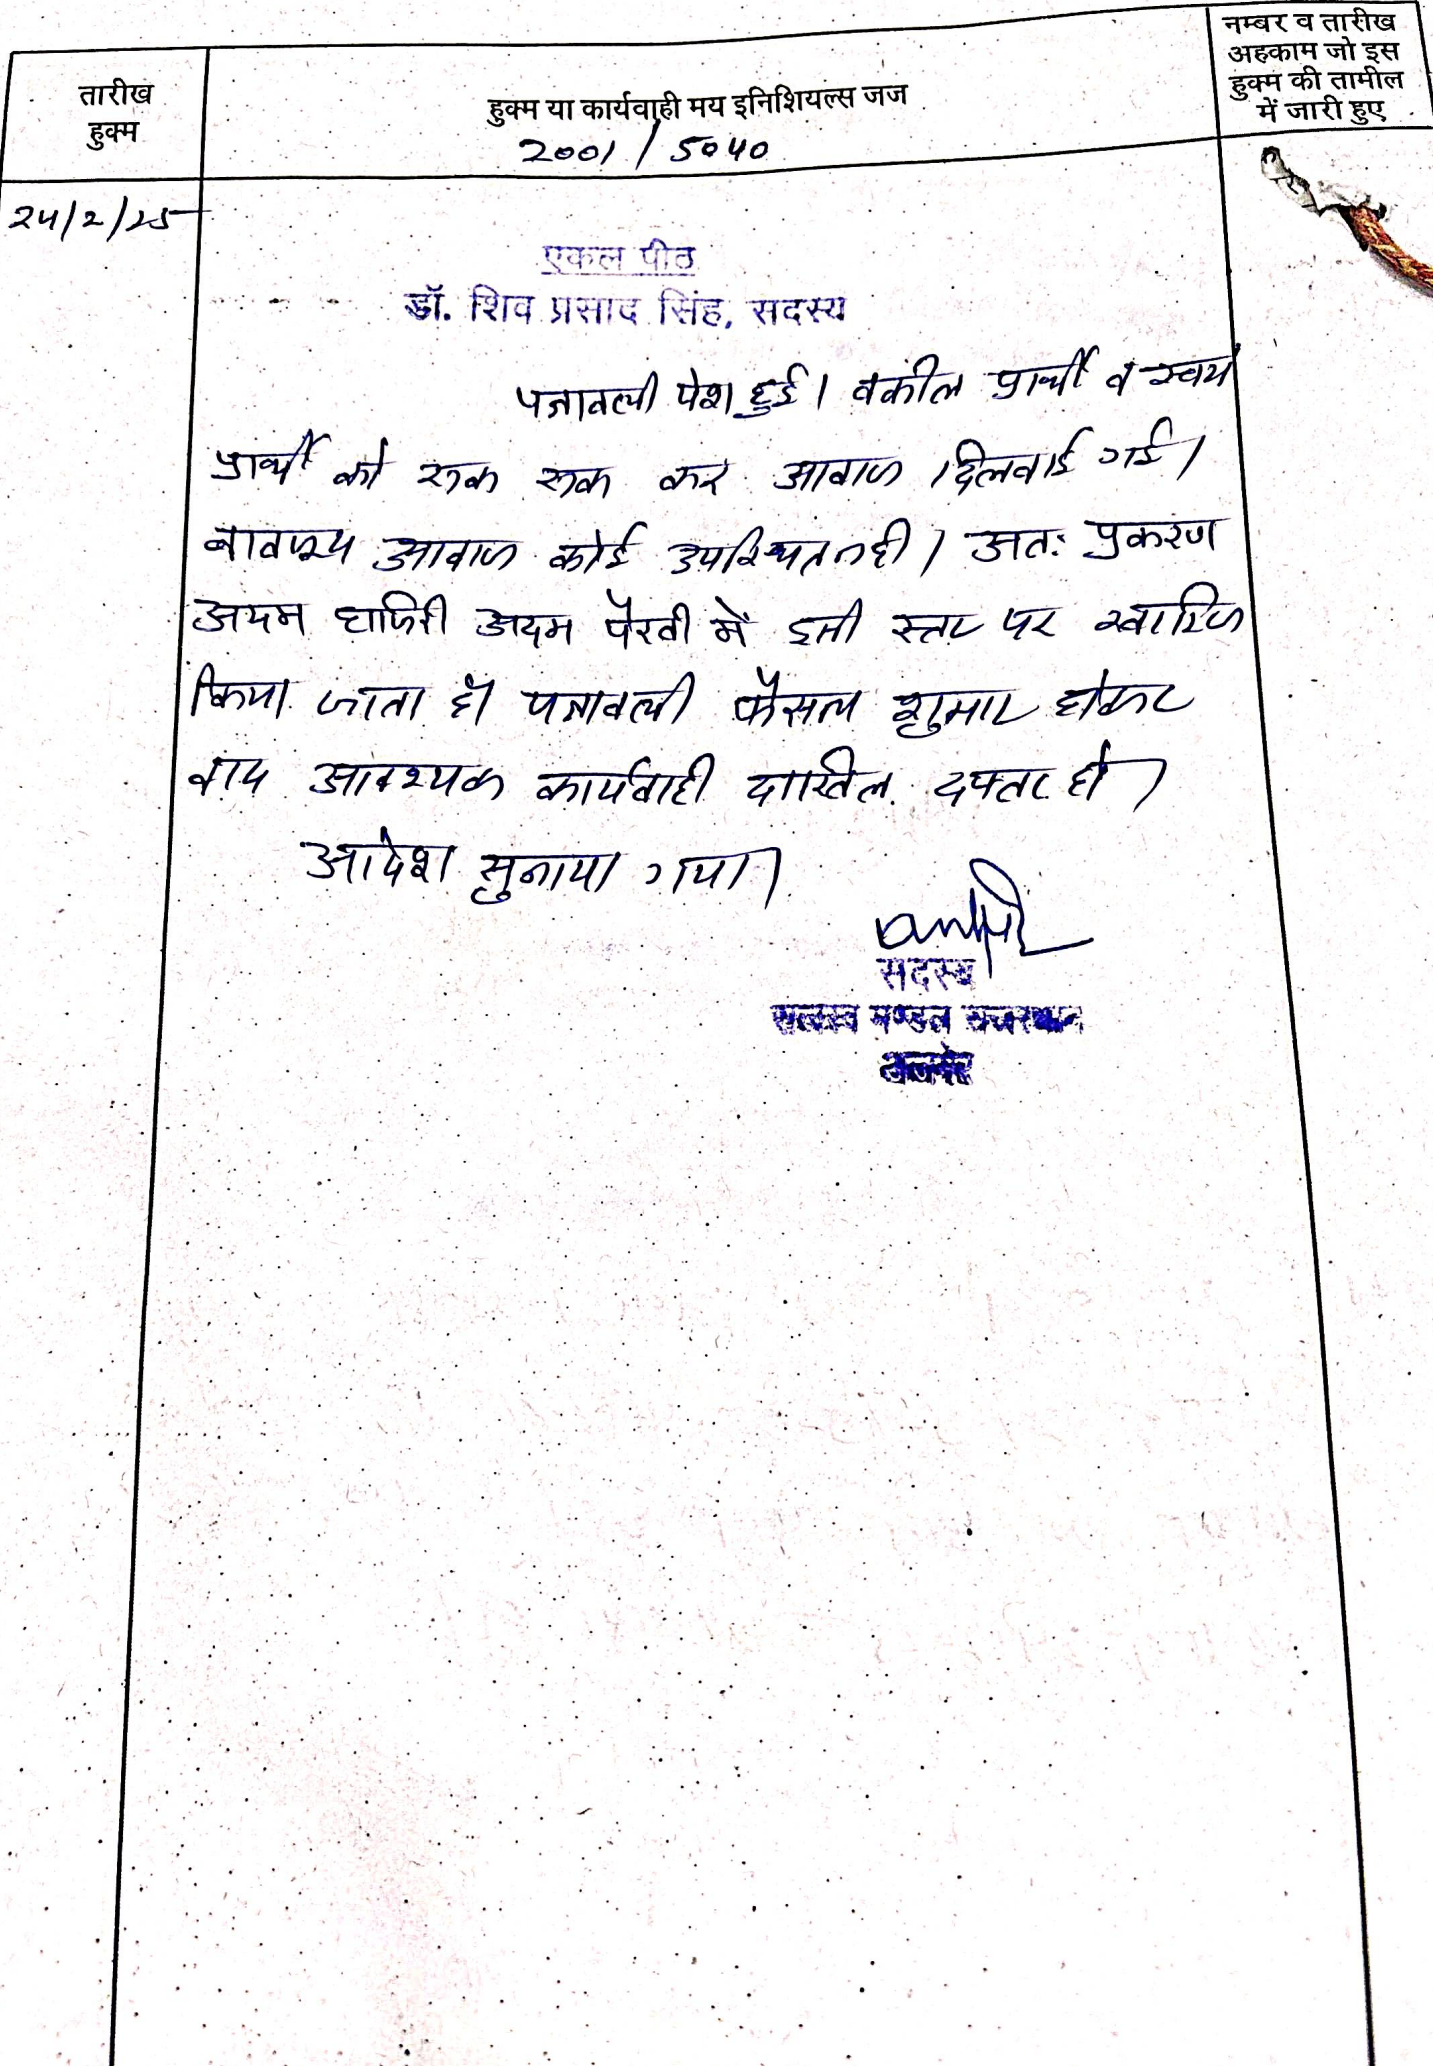 तारीख
हुक्म
हुक्म या कार्यवाही मय इनिशियल्स जज
2001 / 5040
नम्बर व तारीख
अहकाम जो इस
हुक्म की तामील
में जारी हुए
24/2/25
एकल पीठ
डॉ. शिव प्रसाद सिंह, सदस्य
पत्रावली पेश हुई। वकील प्रार्थी व स्वयं
प्रार्थी को रुक रुक कर आवाज दिलवाई गई।
बावजूद आवाज कोई उपस्थित नहीं। अतः प्रकरण
अदम हाजिरी अदम पैरवी में इसी स्तर पर खारिज
किया जाता है। पत्रावली फैसल शुमार होकर
बाद आवश्यक कार्यवाही दाखिल दफ्तर हो।
आदेश सुनाया गया।
सदस्य
राजस्व मण्डल राजस्थान
अजमेर